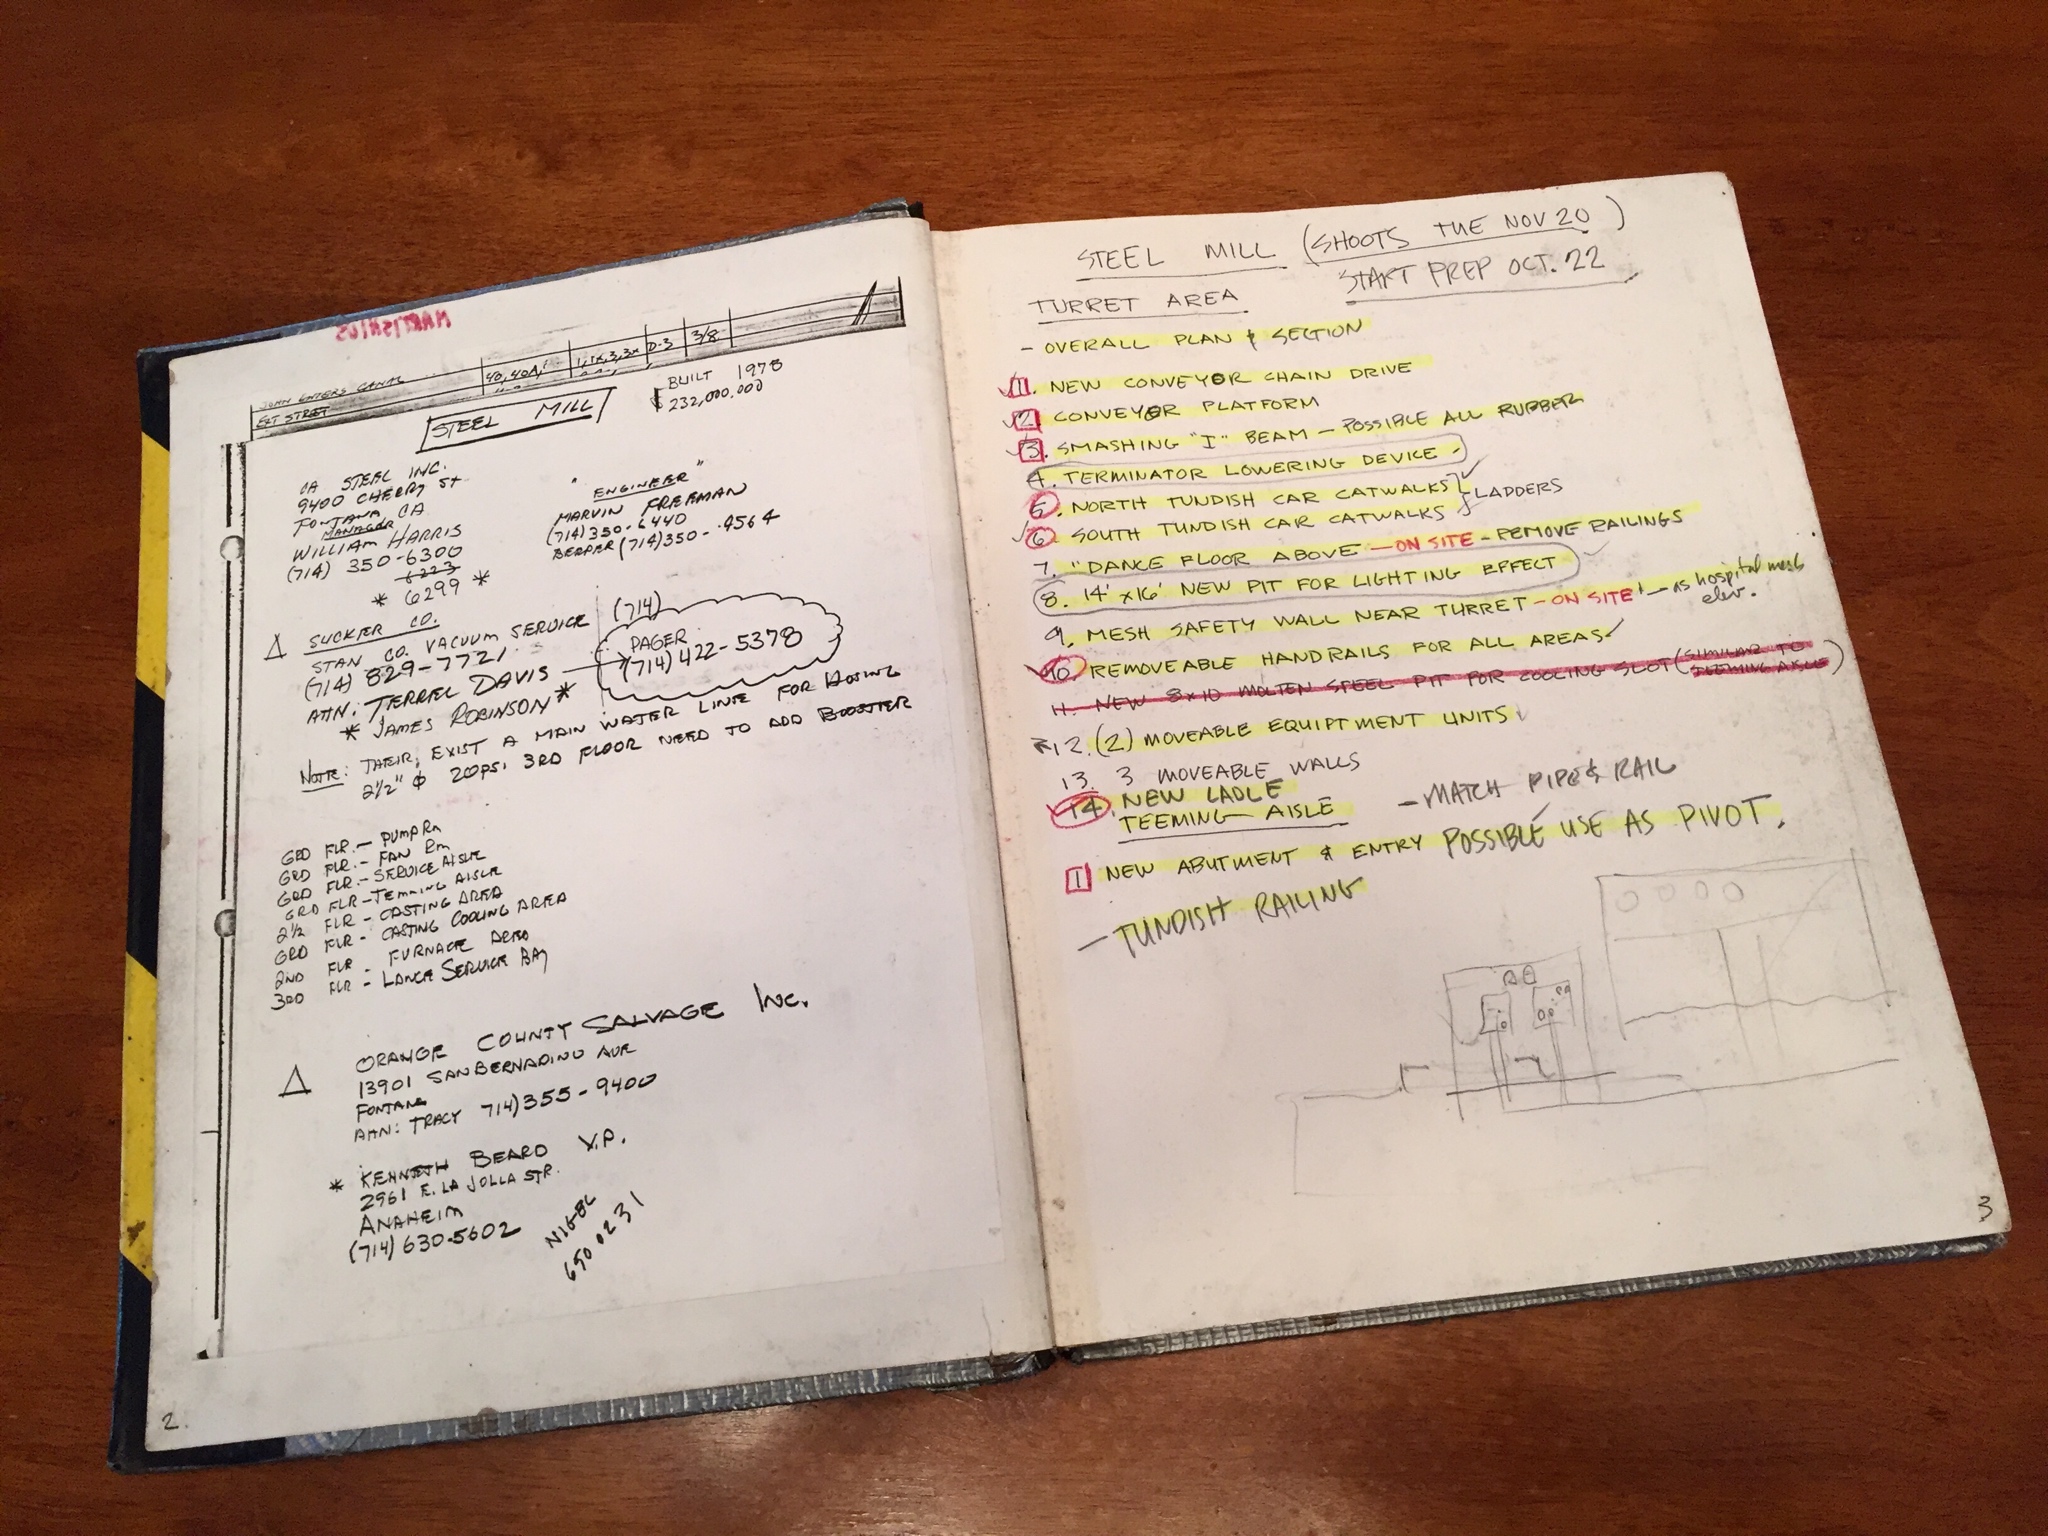 40,40A,
D-3
3/8
EXT STREET
STEEL MILL
BUILT 1978
$ 232,000,000
CA STEEL INC.
9400 CHERRY ST
FONTANA CA
MANAGER
WILLIAM HARRIS
(714) 350-6300
6223
* 6299 *
"ENGINEER"
MARVIN FREEMAN
(714) 350-6440
BEEPER (714) 350-.4564
Δ SUCKER CO.
STAN CO. VACUUM SERVICE
(714) 829-7721
Attn: TERREL DAVIS
* JAMES ROBINSON *
(714)
PAGER
(714) 422-5378
NOTE: THEIR EXIST A MAIN WATER LINE FOR HOSING
2½" ϕ 20psi 3RD FLOOR NEED TO ADD BOOSTER
GRD FLR. - PUMP Rm
GRD FLR. - FAN Rm
GRD FLR. - SERVICE AISLE
GRD FLR - TEMMING AISLE
2½ FLR - CASTING AREA
GRD FLR - CASTING COOLING AREA
2ND FLR - FURNACE AREA
3RD FLR - LANCE SERVICE BAY
Δ ORANGE COUNTY SALVAGE INC.
13901 SAN BERNADINO AVE
FONTANA
Attn: TRACY 714) 355-9400
* KENNETH BEARD V.P.
2961 E. LA JOLLA STR.
ANAHEIM
(714) 630-5602
NIGEL
650 0231
2.
STEEL MILL (SHOOTS TUE NOV 20)
START PREP OCT. 22
TURRET AREA
- OVERALL PLAN & SECTION
1. NEW CONVEYOR CHAIN DRIVE
2. CONVEYOR PLATFORM
3. SMASHING "I" BEAM - POSSIBLE ALL RUBBER
4. TERMINATOR LOWERING DEVICE
5. NORTH TUNDISH CAR CATWALKS
6. SOUTH TUNDISH CAR CATWALKS
& LADDERS
7. "DANCE FLOOR ABOVE - ON SITE - REMOVE RAILINGS
8. 14' x 16' NEW PIT FOR LIGHTING EFFECT
9. MESH SAFETY WALL NEAR TURRET - ON SITE! - as hospital mesh
elev.
10. REMOVEABLE HANDRAILS FOR ALL AREAS
11. NEW 8x10 MOLTEN STEEL PIT FOR COOLING SLOT (SIMILAR TO
TEEMING AISLE)
12. (2) MOVEABLE EQUIPTMENT UNITS
13. 3 MOVEABLE WALLS
14. NEW LADLE
- MATCH PIPE & RAIL
TEEMING AISLE
1 NEW ABUTMENT & ENTRY POSSIBLE USE AS PIVOT.
- TUNDISH RAILING
3